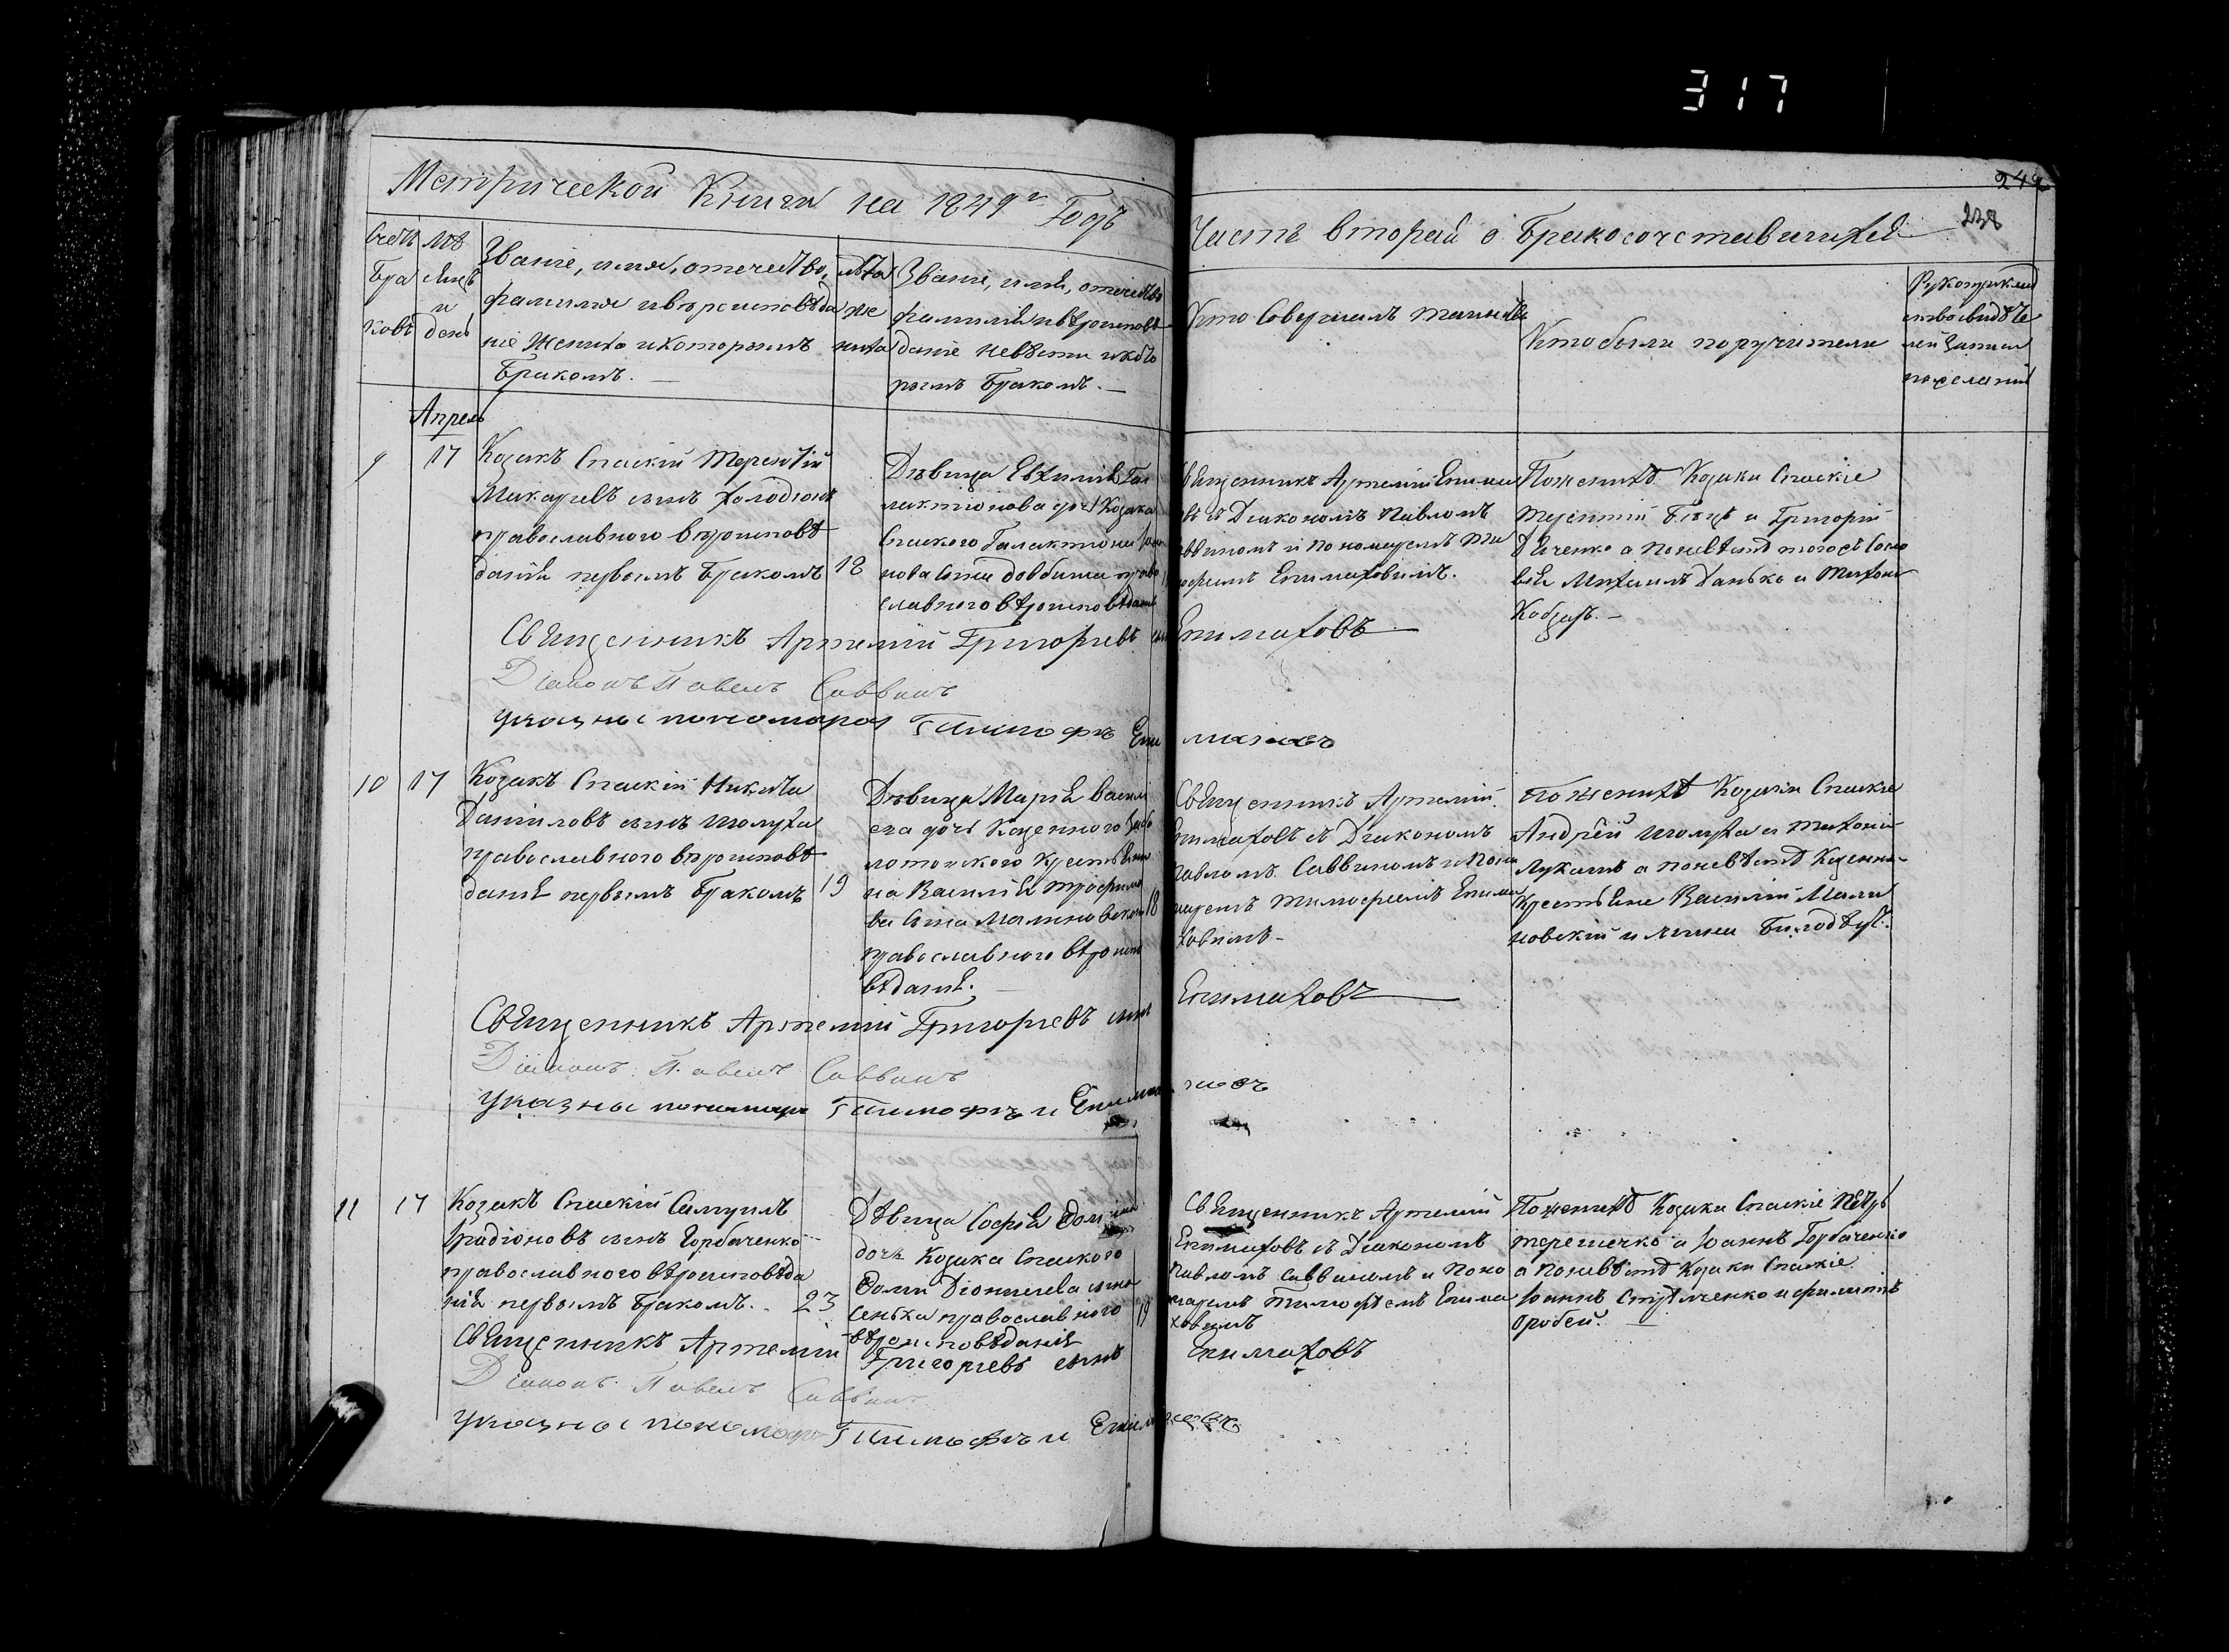 317
242
238
Метрической Книги на 1849й Годъ
Часть вторая о Бракосочетавшихся
Счетъ
бра
ковъ
Мѣ
сяцъ
и
день
Званіе, имя, отечество,
фамилия и вѣроисповѣда
ніе жениха и которымъ
бракомъ. —
лѣта
же
ниха
Званіе, имя, отечество
фамилія и вѣроисповѣ
даніе невѣсты и кото
рымъ бракомъ. —
Кто Совершалъ таинство
Кто были поручители
Рукоприклад
ство свидѣте
лей записи
по желанію
Апрель
9
17
Козакъ Спаскій Терентій
Макаріевъ сынъ Холодюкъ
православного вѣроисповѣ
данія первымъ бракомъ
18
Дѣвица Евфимія Га
лактіонова дочь Козака
Спаского Галактіона
нова сына Довбиша право
славного вѣроисповѣданія
Священникъ Артемій Епима
въ съ Діакономъ Павломъ
Саввиномъ и Пономаремъ Ти
мофеемъ Епимаховимъ.
По женихѣ Козаки Спаскіе
Терентій и Григорій
а по невѣстѣ того съ Сосло
вія Михаилъ Данько и Тихонъ
Кобзарь. —
Священникъ Артемій Григорьевъ сынъ Епимаховъ
Діаконъ Павелъ Саввинъ
указный пономарь Тимофѣй Епимаховъ
10
17
Козакъ Спаскій Никита
Даниловъ сынъ Шолуха
православного вѣроисповѣ
данія первымъ бракомъ
19
Дѣвица Марія Васил
ева дочь Казенного
крестьяни
на Василія Трофимо
ва сына Малиновского
православного вѣроиспо
вѣданія. —
18
Священникъ Артемій
Епимаховъ съ Діакономъ
Павломъ Саввиномъ и Поно
маремъ Тимофеемъ Епима
ховимъ —
По женихѣ Козаки Спаские
Андрей Шолуха и Тихонъ
Лукашъ а по невѣстѣ Казенны
Крестьяне Василій Мали
новскій и
Священникъ Артемій Григорьевъ сынъ Епимаховъ
Діаконъ Павелъ Саввинъ
Указный пономарь Тимофѣй Епимаховъ
11
17
Козакъ Спаскій Самуилъ
Иродіоновъ сынъ Горбаченко
православного вѣроисповѣда
нія первымъ бракомъ. —
23
Дѣвица Софія Фомина
дочь Козака Спаского
Фоми Діонисіева сына
Сенька православного
вѣроисповѣданія
19
Священникъ Артемій
Епимаховъ съ Діакономъ
Павломъ Саввиномъ и Поно
маремъ Тимофѣемъ Епима
ховимъ
По женихѣ Козаки Спаскіе Петръ
Терешечко и Іоаннъ Горбаченко
а по невѣстѣ Козаки Спаскіе
Іоаннъ Стрѣльченко и Филиппъ
Оробей. —
Священникъ Артемій Григорьевъ сынъ Епимаховъ
Діаконъ Павелъ Саввинъ
указный пономарь Тимофѣй Епимаховъ